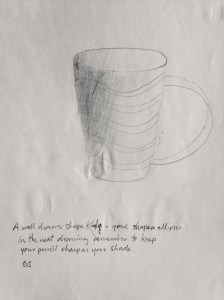 A well drawn shape – good shaped ellipses
in the next drawing remember to keep
your pencil sharp as you shade.